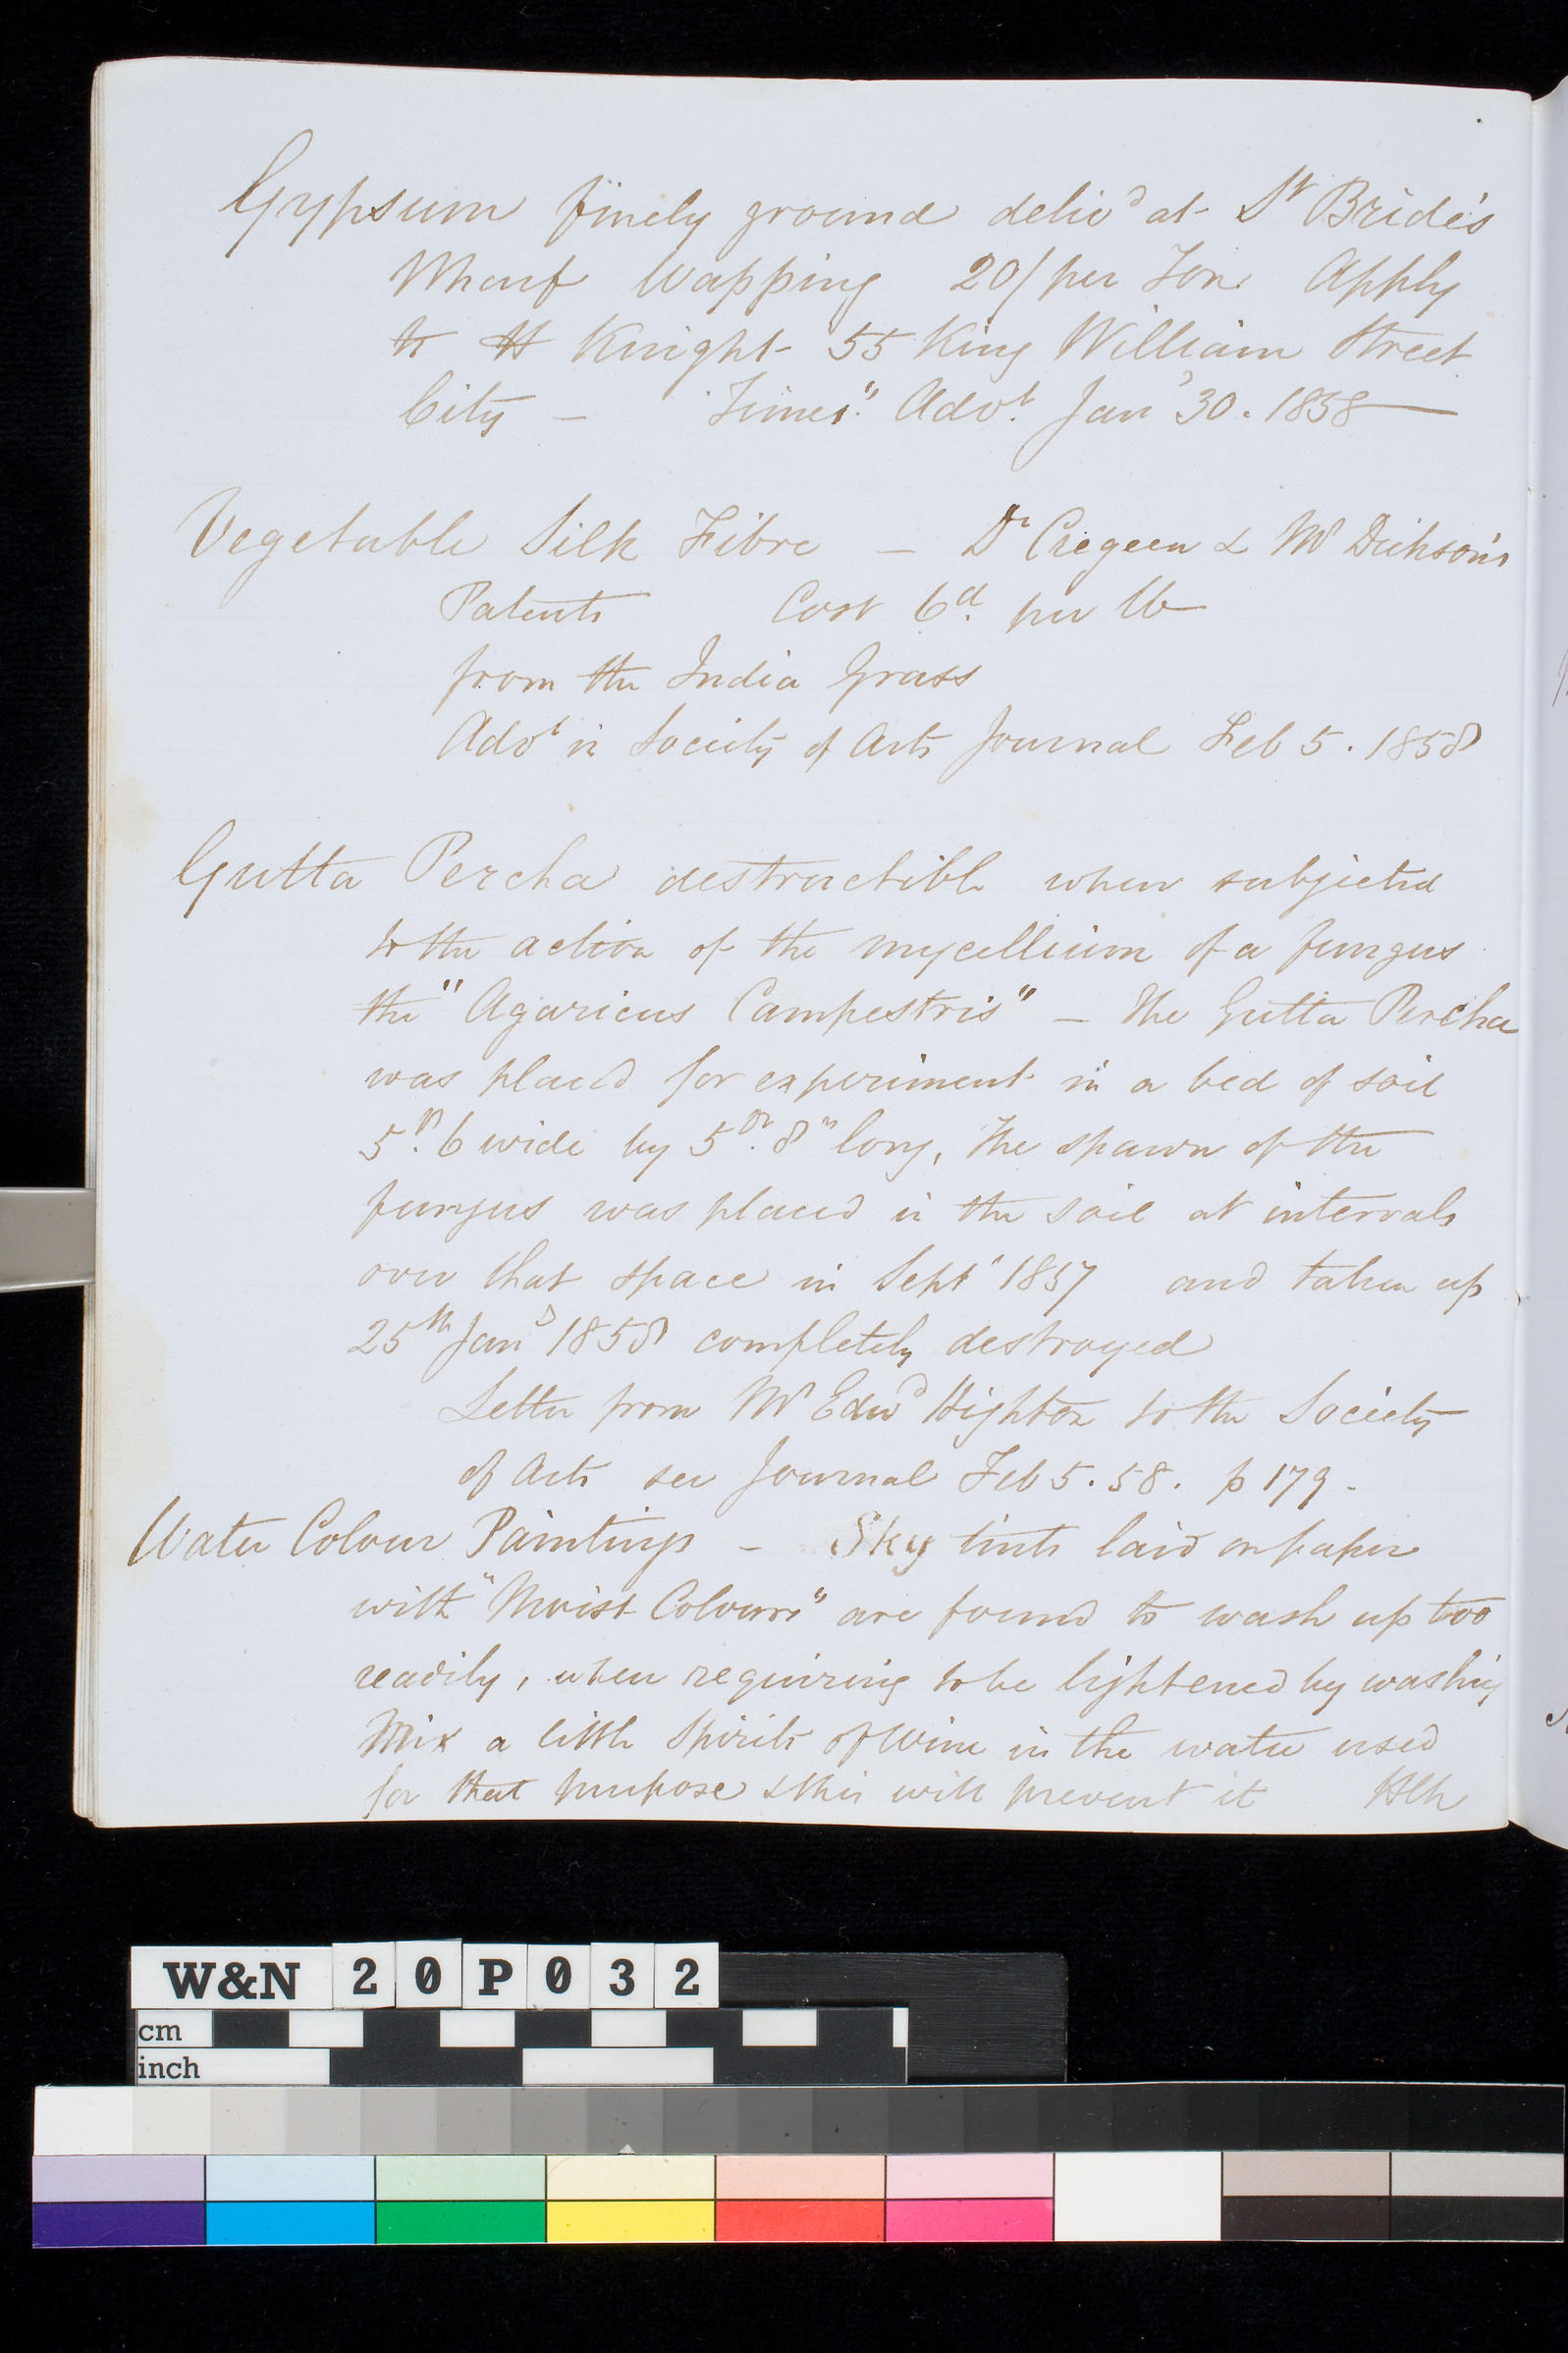 Gypsum finely ground deliv^d at St Bride's
Wharf Wapping 20/ per Ton Apply
to H Knight 55 King William Street
City – "Times" Advt. Jany 30. 1858
Vegetable Silk Fibre – Dr Cregeen & Mr Dickson's
Patents Cost 6d. per lb
from the India Grass
Advt in Society of Arts Journal Feb 5. 1858
Gutta Percha destructible when subjected
to the action of the mycellium of a fungus
the "Agaricus Campestris" – The Gutta Percha
was placed for experiment in a bed of soil
5ft. 6 wide by 5ft. 8in long, The spawn of the
fungus was placed in the soil at intervals
over that space in Septr 1857 and taken up
25th Jany 1858 completely destroyed
Letter from Mr Edwd Highton to the Society
of Arts see Journal Feb 5. 58. p 179.
Water Colour Paintings – Sky tints laid on paper
with "Moist Colours" are found to wash up too
readily, when requiring to be lightened by washing
Mix a little Spirits of Wine in the water used
for that purpose & this will prevent it
W&N 20P032
cm
inch